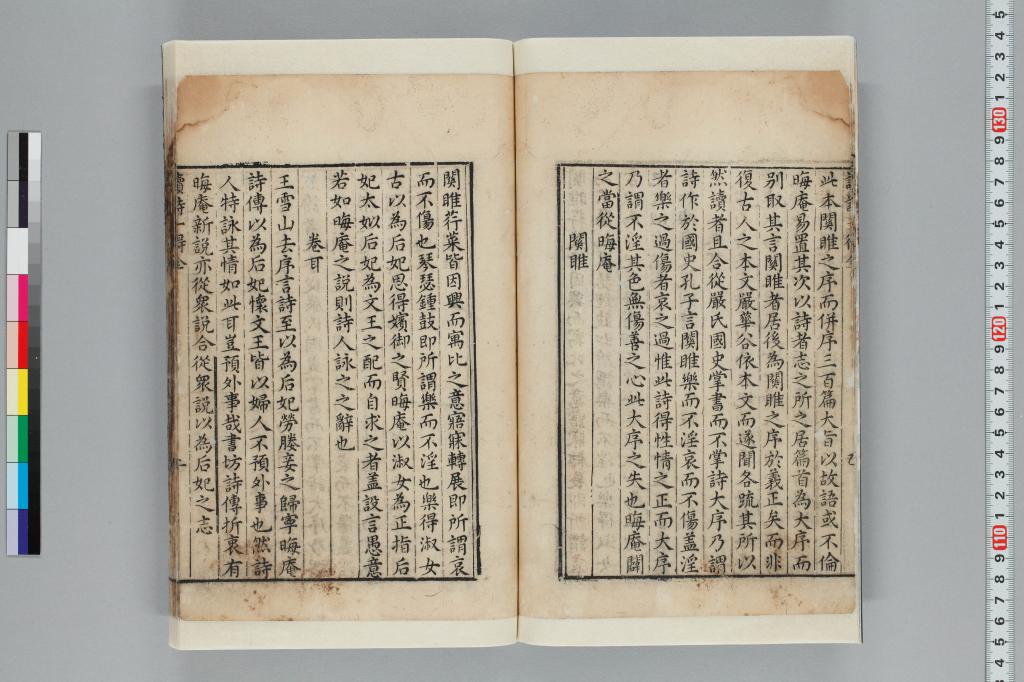 此本関雎之序而併序三百篇大旨以故語或不倫
晦庵易置其次以詩者志之所之居篇首為大序而
別取其言関雎者居後為関雎之序於義正矣而非
復古人之本文嚴華谷依本文而遂聞各䟽其所以
然讀者且合從嚴氏國史掌書而不掌詩大序乃謂
詩作於國史孔子言関雎樂而不淫哀而不傷盖淫
者樂之過傷者哀之過惟此詩得性情之正而大序
乃謂不淫其色無傷善之心此大序之失也晦庵闢
之當從晦庵
関雎
関雎荇菜皆因興而寓比之意寤寐轉展即所謂哀
而不傷也琴瑟鍾鼓即所謂樂而不淫也樂得淑女
古以為后妃思得嬪御之賢晦庵以淑女為正指后
妃太姒后妃為文王之配而自求之者盖設言愚意
若如晦庵之說則詩人詠之之辭也
卷耳
王雪山去序言詩至以為后妃勞媵妾之歸寧晦庵
詩傳以為后妃懷文王皆以婦人不預外事也然詩
人特詠其情如此耳豈預外事哉書坊詩傳折衷有
晦庵新說亦從衆說合從衆說以為后妃之志
讀詩一得